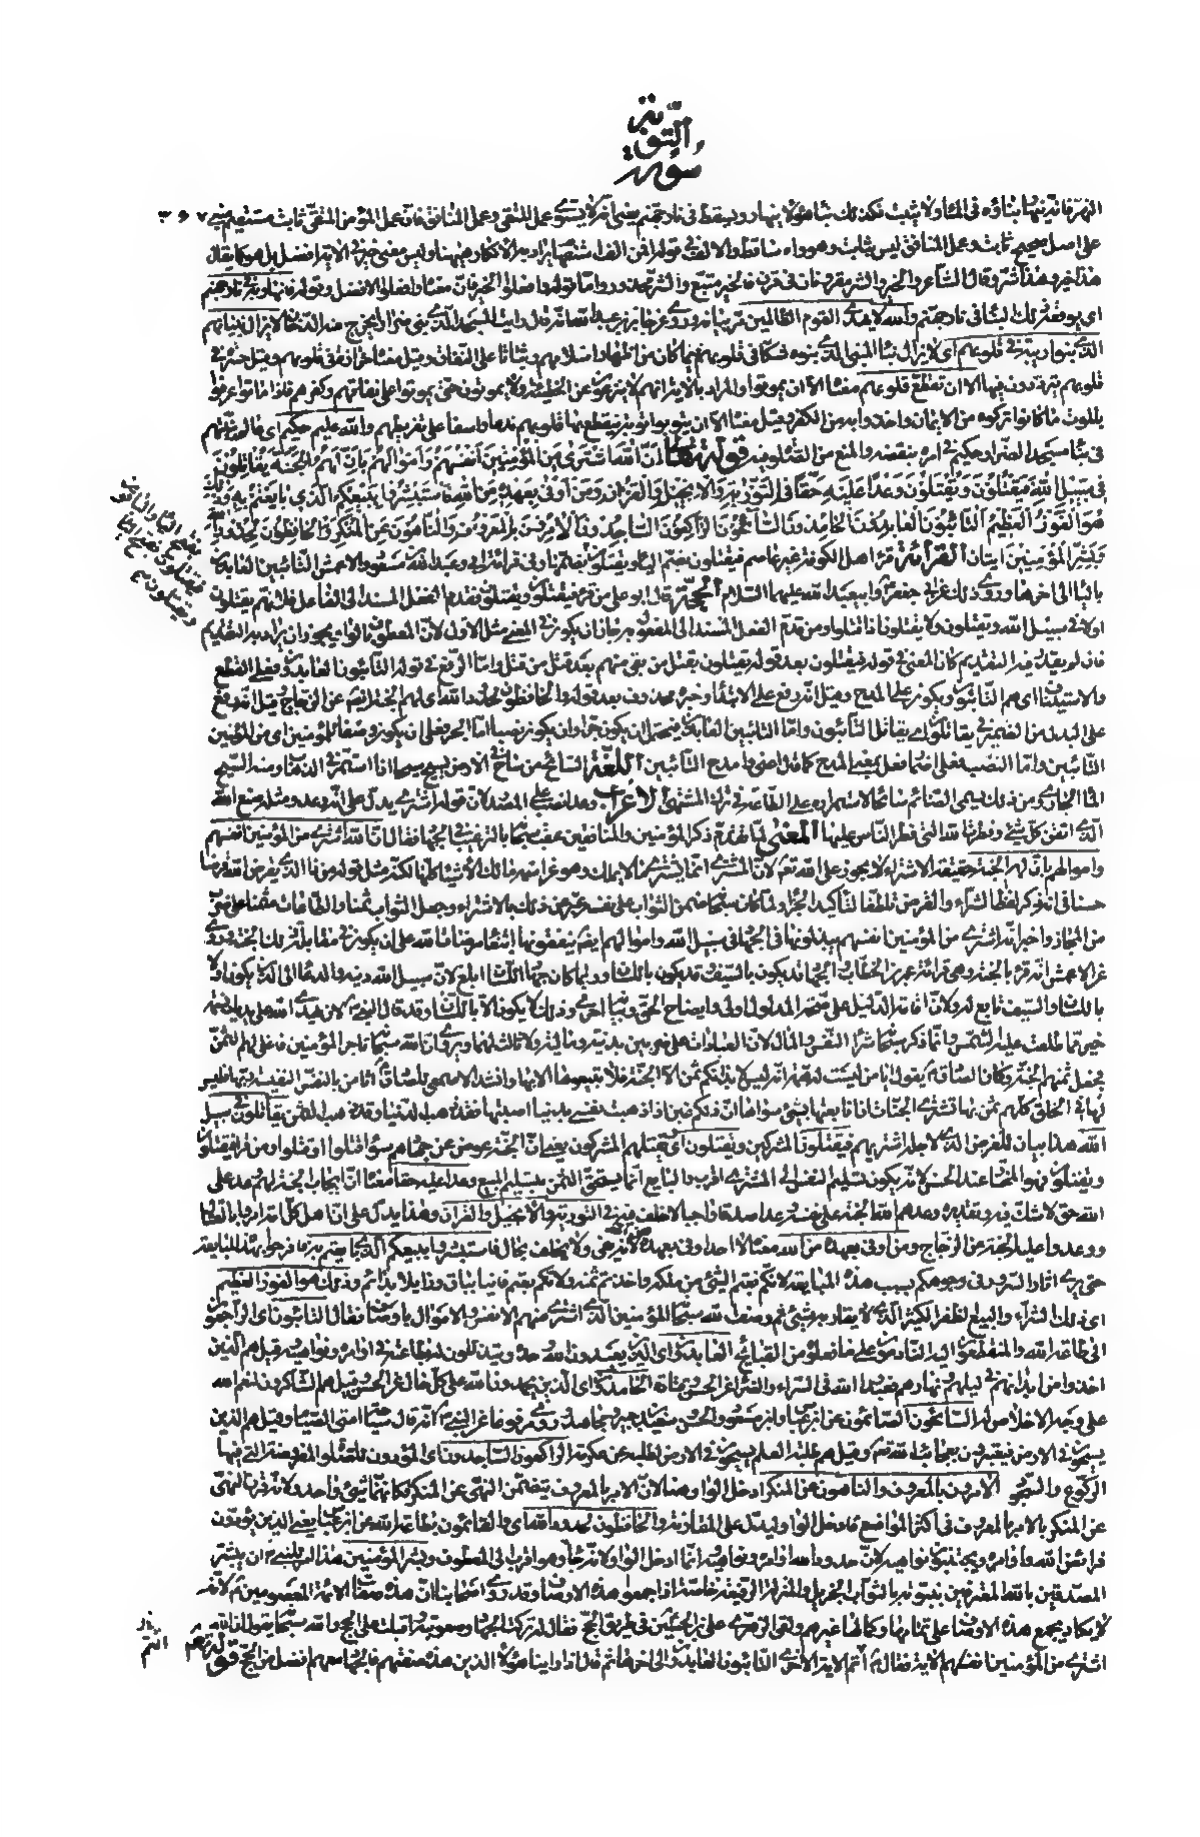 سورة
التوبة
النهر فانه ينهار بناؤه في الماء ولا يثبت فكذلك بناء هؤلاء ينهار ويسقط في نار جهنم يعني انه لا يستوي عمل المتقي وعمل المنافق فان عمل المؤمن المتقي ثابت مستقيم مبني
على اصل صحيح ثابت وعمل المنافق ليس بثابت وهو واه ساقط والالف في قوله افمن الف استفهام يراد به الانكار
هذا خير وهذا شر وقال الشاعر والخير والشر مقرونان في قرن فالخير متبع والشر محذور واما قوله وافعلوا الخير فان معناه افعلوا الافضل وقوله فانهار به في نار جهنم
اي يوقعه ذلك البناء في نار جهنم والله لا يهدي القوم الظالمين
الذي بنوا ريبة في قلوبهم اي لا يزال بناء المبنى الذي بنوه شكا في قلوبهم فيما كان من اظهار اسلامهم وثباتا على النفاق وقيل معناه حزازة في قلوبهم وقيل حسرة في
قلوبهم يترددون فيها الا ان تقطع قلوبهم معناه الا ان يموتوا والمراد بالآية انهم لا ينزعون عن الخطيئة ولا يتوبون حتى يموتوا على نفاقهم وكفرهم فاذا ماتوا عرفوا
بالموت ما كانوا تركوه من الايمان واخذوا به من الكفر وقيل معناه الا ان يتوبوا توبة تتقطع بها قلوبهم ندما واسفا على تفريطهم والله عليم حكيم اي عالم بنيتهم
في بناء مسجد الضرار حكيم في امره بنقضه والمنع من الصلوة فيه قوله تعالى ان الله اشترى من المؤمنين انفسهم واموالهم بان لهم الجنة يقاتلون
في سبيل الله فيقتلون ويقتلون وعدا عليه حقا في التورية والانجيل والقرآن ومن اوفى بعهده من الله فاستبشروا ببيعكم الذي بايعتم به وذلك
هو الفوز العظيم التائبون العابدون الحامدون السائحون الراكعون الساجدون الآمرون بالمعروف والناهون عن المنكر والحافظون لحدود الله
وبشر المؤمنين آيتان القراءة قرأ اهل الكوفة غير عاصم فيقتلون بضم الياء ويقتلون بفتحها وفي قراءة ابي وعبد الله بن مسعود والاعمش التائبين العابدين
بالياء الى آخرها وروي ذلك عن ابي جعفر وابي عبد الله عليهما السلام الحجة قال ابو علي من قرأ فيقتلون ويقتلون فقدم الفعل المسند الى الفاعل فلانهم يقتلون
اولا في سبيل الله ويقتلون ولا يقتلون اذا قتلوا ومن قدم الفعل المسند الى المفعول به جاز ان يكون في المعنى مثل الاول لان المعطوف بالواو يجوز ان يراد به التقديم
فان لم يقدر فيه التقديم كان المعنى في قوله فيقتلون بعد قوله يقتلون يقتل من بقي منهم بعد قتل من قتل واما الرفع في قوله التائبون العابدون فعلى القطع
والاستيناف اي هم التائبون ويكون على المدح وقيل انه رفع على الابتداء وخبره محذوف بعد قوله والحافظون لحدود الله اي لهم الجنة ايضا عن الزجاج وقيل انه رفع
على البدل من الضمير في يقاتلون اي يقاتل التائبون واما التائبين العابدين فيحتمل ان يكون جرا وان يكون نصبا اما الجر فعلى ان يكون وصفا للمؤمنين اي من المؤمنين
التائبين واما النصب فعلى اضمار فعل بمعنى المدح كانه قال اعني وامدح التائبين اللغة السائح من ساح في الارض يسيح سيحا اذا استمر في الذهاب ومنه السيح
الماء الجاري ومن ذلك يسمى الصائم سائحا لاستمراره على الطاعة في ترك المشتهى الاعراب وعدا نصب على المصدر لان قوله اشترى يدل على انه وعد ومثله صنع الله
الذي اتقن كل شيء وفطرة الله التي فطر الناس عليها المعنى لما تقدم ذكر المؤمنين والمنافقين عقب سبحانه بالترغيب في الجهاد فقال ان الله اشترى من المؤمنين انفسهم
واموالهم بان لهم الجنة حقيقة الاشتراء لا يجوز على الله تعالى لان المشتري انما يشتري ما لا يملك وهو عز اسمه مالك الاشياء كلها لكنه مثل قوله من ذا الذي يقرض الله قرضا
حسنا في انه ذكر لفظ الشراء والقرض تلطفا لتأكيد الجزاء ولما كان سبحانه ضمن الثواب على نفسه عبر عن ذلك بالاشتراء وجعل الثواب ثمنا والطاعات مثمنا على ضرب
من المجاز واخبر انه اشترى من المؤمنين انفسهم يبذلونها في الجهاد في سبيل الله واموالهم ايضا ينفقونها ابتغاء مرضات الله على ان يكون في مقابلة ذلك الجنة وروي
عن الاعمش انه قرأ بالجنة وهي قراءة عمر بن الخطاب والجهاد قد يكون بالسيف وقد يكون باللسان وربما كان جهاد اللسان ابلغ لان سبيل الله دينه والدعاء الى الدين يكون اولا
باللسان والسيف تابع له ولان اقامة الدليل على صحة المدلول اولى وايضاح الحق وبيانه احرى وذلك لا يكون الا باللسان وقد قال النبي لان يهدي الله على يديك نسمة
خير مما طلعت عليه الشمس وانما ذكر سبحانه شراء النفس والمال لان العبادات على ضربين بدنية ومالية ولا ثالث لهما ويروى ان الله سبحانه تاجر المؤمنين فاغلى لهم الثمن
فجعل ثمنهم الجنة وكان الصادق يقول ايا من ليست له همة انه ليس لابدانكم ثمن الا الجنة فلا تبيعوها الا بها وانشد الاصمعي للصادق اثامن بالنفس النفيسة ربها فليس
لها في الخلق كلهم ثمن بها نشتري الجنات ان انا بعتها بشيء سواها ان ذلكم غبن اذا ذهبت نفسي بدنيا اصبتها فقد ذهب الدنيا وقد ذهب الثمن يقاتلون في سبيل
الله هذا بيان للغرض الذي لاجله اشتريهم فيقتلون المشركين ويقتلون اي يقتلهم المشركون يعني ان الجنة عوض عن جهادهم سواء قتلوا او قتلوا ومن قرأ فيقتلون
ويقتلون فهو المختار عند الحسن لانه يكون تسليم النفس الى المشتري اقرب والبايع انما يستحق الثمن بتسليم المبيع وعدا عليه حقا معناه ان ايجاب الجنة لهم وعد على
الله حق لا شك فيه وتقديره وعدهم الله الجنة على نفسه وعدا صدقا واجبا لا خلف فيه في التورية والانجيل والقرآن وهذا يدل على ان اهل كل ملة امروا بالقتال
ووعدوا عليه الجنة عن الزجاج ومن اوفى بعهده من الله معناه لا احد اوفى بعهده من الله لانه يفي ولا يخلف بحال فاستبشروا ببيعكم الذي بايعتم به فافرحوا بهذه المبايعة
حتى يرى آثار السرور في وجوهكم بسبب هذه المبايعة لانكم بعتم الشيء من مالكه واخذتم ثمنه ولانكم بعتم فانيا بباق وزائلا بدائم وذلك هو الفوز العظيم
اي ذلك الشراء والبيع الظفر الكبير الذي لا يقاربه شيء ثم وصف الله سبحانه المؤمنين الذين اشترى منهم الانفس والاموال باوصاف فقال التائبون اي الراجعون
الى طاعة الله والمنقطعون اليه النادمون على ما فعلوه من القبائح العابدون اي الذين يعبدون الله وحده ويذللون له بطاعته في اوامره ونواهيه وقيل هم الذين
اخذوا من ابدانهم في ليلهم ونهارهم فعبدوا الله في السراء والضراء عن الحسن وقتادة الحامدون اي الذين يحمدون الله على كل حال عن الحسن وقيل هم الشاكرون لنعم الله
على وجه الاخلاص له السائحون الصائمون عن ابن عباس وابن مسعود والحسن وسعيد بن جبير ومجاهد وروي مرفوعا عن النبي انه قال سياحة امتي الصيام وقيل هم الذين
يسيحون في الارض فيعتبرون بعجائب الله تعالى وقيل هم طلبة العلم يسيحون في الارض لطلبه عن عكرمة الراكعون الساجدون اي المؤدون للصلوة المفروضة التي فيها
الركوع والسجود الآمرون بالمعروف والناهون عن المنكر ادخل الواو هنا لان الامر بالمعروف يتضمن النهي عن المنكر فكانهما شيء واحد ولانه قرن النهي
عن المنكر بالامر بالمعروف في اكثر المواضع فادخل الواو ليدل على المقارنة والحافظون لحدود الله اي والقائمون بطاعة الله عن ابن عباس يعني الذين يؤدون
فرائض الله واوامره ويجتنبون نواهيه لان حدود الله اوامره ونواهيه وانما ادخل الواو لانه جاء وهو اقرب الى المعطوف وبشر المؤمنين هذا امر للنبي ان يبشر
المصدقين بالله المعترفين بنبوته بالثواب الجزيل والمنزلة الرفيعة خاصة اذا جمعوا هذه الاوصاف وقد روى اصحابنا ان هذه صفات الائمة المعصومين لانه
لا يكاد يجمع هذه الاوصاف على تمامها وكمالها غيرهم ولقي الزهري علي بن الحسين في طريق الحج فقال له تركت الجهاد وصعوبته واقبلت على الحج والله سبحانه يقول ان الله
اشترى من المؤمنين انفسهم الآية فقال اتم الآية الاخرى التائبون العابدون الى آخرها ثم قال اذا رأينا هؤلاء الذين هذه صفتهم فالجهاد معهم افضل من الحج قوله